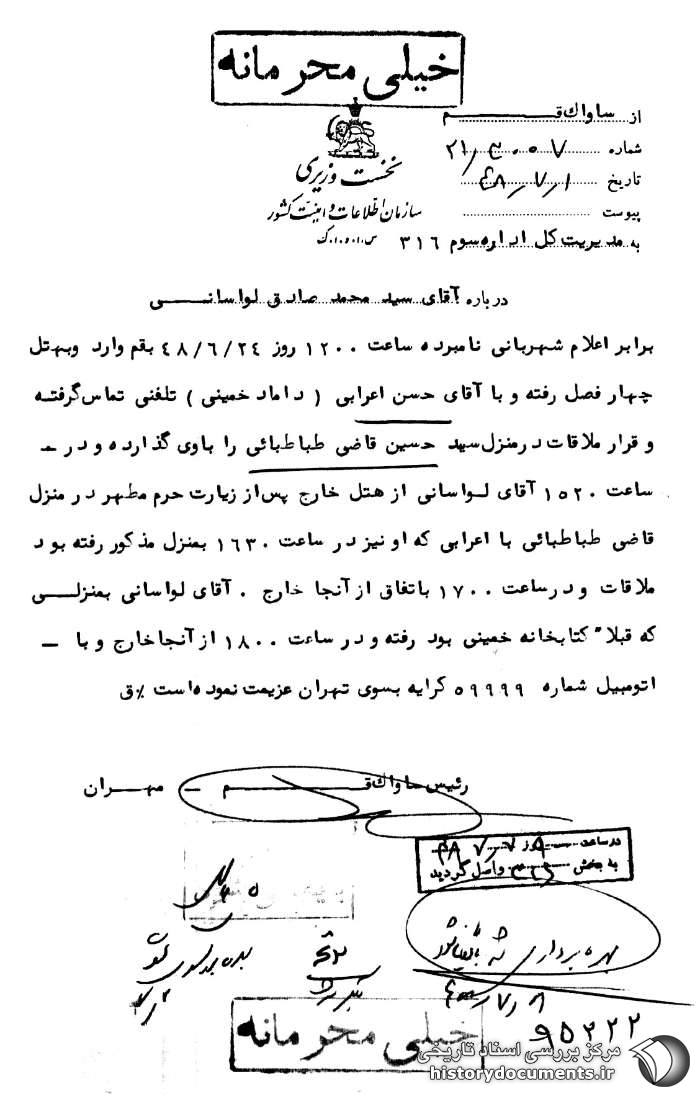 خیلی محرمانه
از ساواک قم
شماره ۲۱/۳۰۰۷
تاریخ ۴۸/۷/۱
پیوست
به مدیریت کل اداره سوم ۳۱۶
نخست وزیری
سازمان اطلاعات و امنیت کشور
درباره آقای سید محمد صادق لواسانی
برابر اعلام شهربانی نامبرده ساعت ۱۲۰۰ روز ۴۸/۶/۲۴ بقم وارد وبهتل
چهار فصل رفته و با آقای حسن اعرابی ( داماد خمینی ) تلفنی تماس گرفته
و قرار ملاقات در منزل سید حسین قاضی طباطبائی را باوی گذارده و در –
ساعت ۱۵۲۰ آقای لواسانی از هتل خارج پس از زیارت حرم مطهر در منزل
قاضی طباطبائی با اعرابی که او نیز در ساعت ۱۶۳۰ بمنزل مذکور رفته بود
ملاقات و در ساعت ۱۷۰۰ باتفاق از آنجا خارج . آقای لواسانی بمنزلی
که قبلا" کتابخانه خمینی بود رفته و در ساعت ۱۸۰۰ از آنجا خارج و با –
اتومبیل شماره ۵۹۹۹۹ کرایه بسوی تهران عزیمت نموده است ٪ق
رئیس ساواک قم – مهران
در ساعت روز
به بخش ۳۱۶ واصل گردید
بهره برداری شد بایگانی شود
۴۸/۷/۸
۹۵۲۲۲
خیلی محرمانه
مرکز بررسی اسناد تاریخی
historydocuments.ir